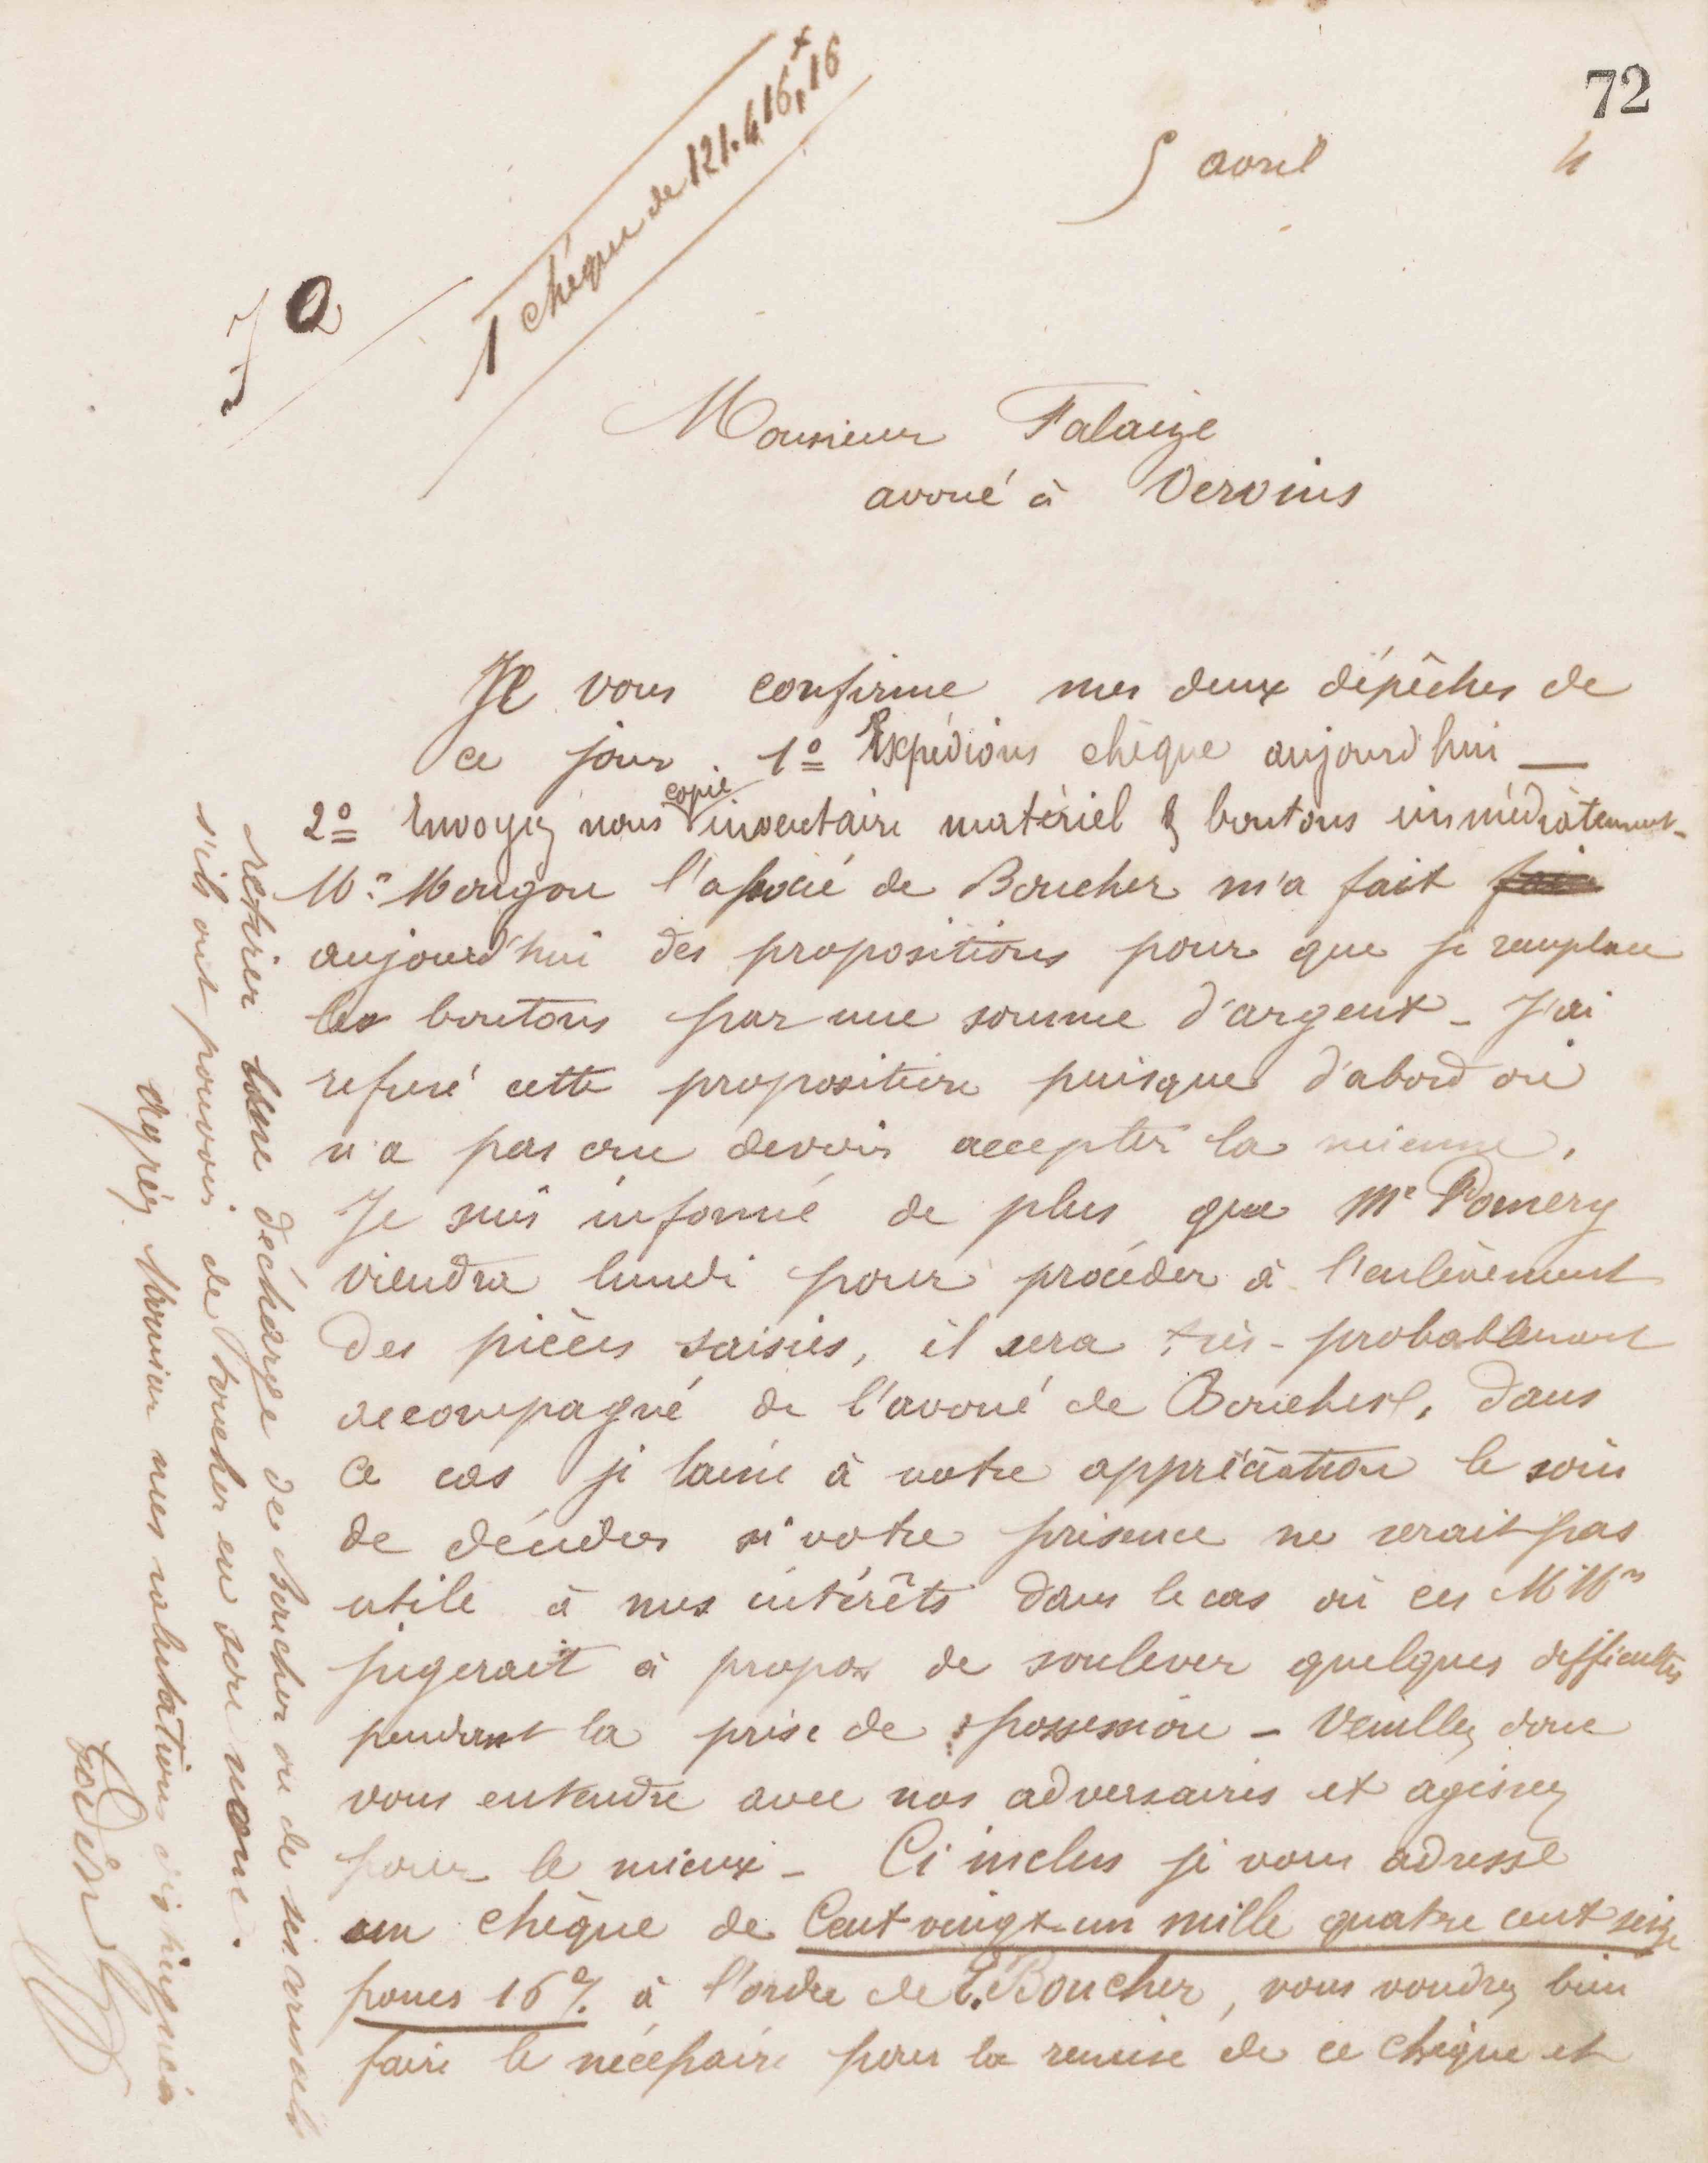 72
5 avril 4
1 chèque de 121.416,16
Monsieur Falaize
avoué à Vervins
Je vous confirme mes deux dépêches de
ce jour. 1º Expédions chèque aujourd'hui —
2º Envoyez nous copie inventaire matériel & boutons immédiatement -
Mr. Mougou l'associé de Boucher m'a fait
aujourd'hui des propositions pour que je remplace
les boutons par une somme d'argent - J'ai
refusé cette proposition puisque d'abord on
n'a pas cru devoir accepter la mienne.
Je suis informé de plus que Me Pomery
viendra lundi pour procéder à l'enlèvement
des pièces saisies, il sera très-probablement
accompagné de l'avoué de Boucher. dans
ce cas je laisse à votre appréciation le soin
de décider si votre présence ne serait pas
utile à mes intérêts dans le cas où ces MMrs
jugerait à propos de soulever quelques difficultés
pendant la prise de possession - Veuillez donc
vous entendre avec nos adversaires et agissez
pour le mieux - Ci inclus je vous adresse
un chèque de Cent vingt-un mille quatre cent seize
francs 16 % à l'ordre de E. Boucher, vous voudrez bien
faire le nécessaire pour la remise de ce chèque et
retirer bonne décharge de Boucher ou de ses avocats
s'ils ont pouvoir de toucher en son nom.
Agréez Monsieur mes salutations distinguées
Godin